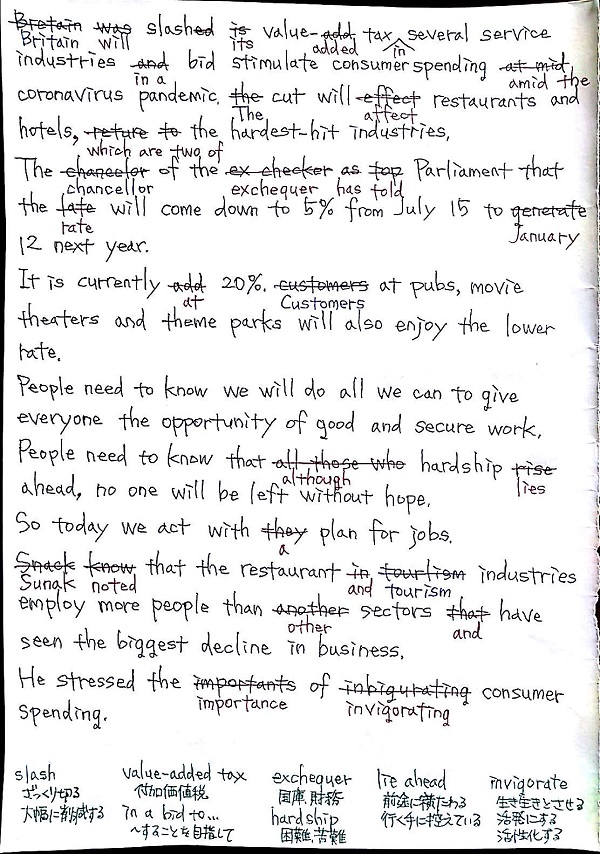 Bretain was slashed is value-add tax several service
Britain will its added in
industries and bid stimulate consumer spending at mid
in a amid the
coronavirus pandemic. the cut will effect restaurants and
The affect
hotels, reture to the hardest-hit industries.
which are two of
The chancelor of the ex checker as top Parliament that
chancellor exchequer has told
the late will come down to 5% from July 15 to generate
rate January
12 next year.
It is currently add 20%. customers at pubs, movie
at Customers
theaters and theme parks will also enjoy the lower
rate.
People need to know we will do all we can to give
everyone the opportunity of good and secure work.
People need to know that all those who hardship rise
although lies
ahead, no one will be left without hope.
So today we act with they plan for jobs.
a
Snack know that the restaurant in tourlism industries
Sunak noted and tourism
employ more people than another sectors that have
other and
seen the biggest decline in business.
He stressed the importants of inbigurating consumer
importance invigorating
spending.
slash value-added tax exchequer lie ahead invigorate
ざっくり切る 付加価値税 国庫、財務 前途に横たわる 生き生きとさせる
大幅に削減する in a bid to... hardship 行く手に控えている 活発にする
～することを目指して 困難、苦難 活性化する